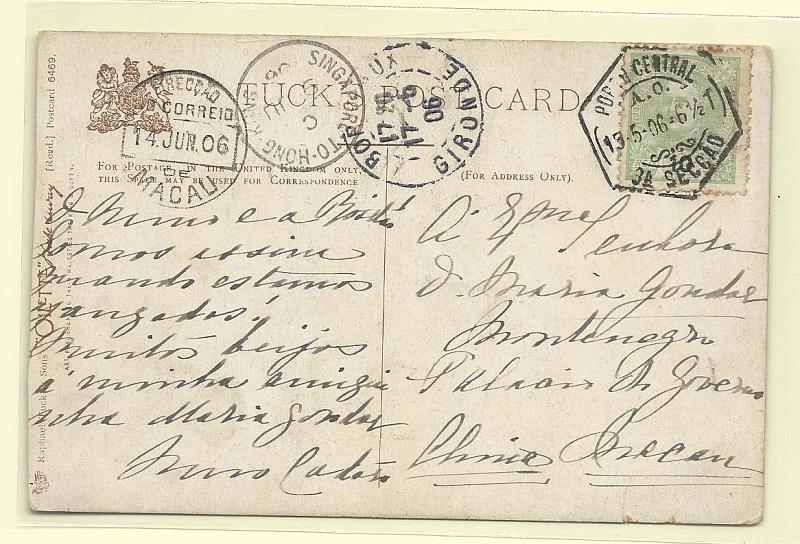 TUCK POST CARD
FOR POSTAGE IN THE UNITED KINGDOM ONLY,
THIS SPACE MAY BE USED FOR CORRESPONDENCE
(FOR ADDRESS ONLY).
DIRECÇÃO
DO CORREIO
14.JUN.06
DE
MACAU
SINGAPORE-TO-HONG-KONG
BORDEAUX
06
GIRONDE
PORTO CENTRAL
A.O.
13-5-06-6½T
3A SECÇÃO
O Nuno e a
somos assim
quando estamos
zangados!
Muitos beijos
á minha amigui
nha Maria Gondar
Nuno
Á Exma Senhora
D. Maria Gondar
Montenegro
Palacio do Governo
China Macau
Raphael Tuck & Sons "OILETTE" [Regd.] Postcard 6469.